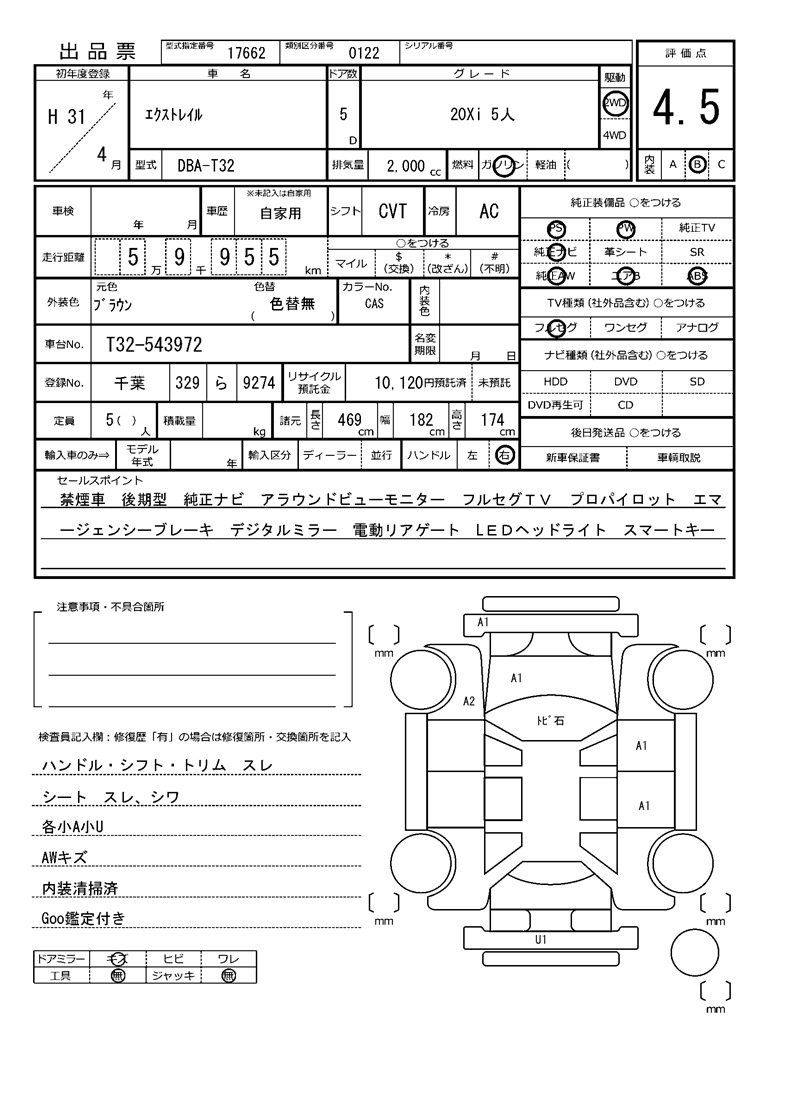 出品票 型式指定番号 17662 類別区分番号 0122 シリアル番号
評価点
4.5
内装 A B C
初年度登録 車名 ドア数 グレード 駆動
H 31 年 4 月 エクストレイル 5 D 20Xi 5人 2WD 4WD
型式 DBA-T32 排気量 2.000 cc 燃料 ガソリン 軽油 ( )
車検 年 月 車歴 ※未記入は自家用 自家用 シフト CVT 冷房 AC
走行距離 5 万 9 千 9 5 5 km ○をつける
マイル $(交換) *(改ざん) #(不明)
外装色 元色 ブラウン 色替 ( 色替無 ) カラーNo. CAS 内装色
車台No. T32-543972 名変期限 月 日
登録No. 千葉 329 ら 9274 リサイクル預託金 10,120円預託済 未預託
定員 5( )人 積載量 kg 諸元 長さ 469cm 幅 182cm 高さ 174cm
輸入車のみ⇒ モデル年式 年 輸入区分 ディーラー 並行 ハンドル 左 右
純正装備品 ○をつける
PS PW 純正TV
純正ナビ 革シート SR
純正AW エアB ABS
TV種類(社外品含む)○をつける
フルセグ ワンセグ アナログ
ナビ種類(社外品含む)○をつける
HDD DVD SD
DVD再生可 CD
後日発送品 ○をつける
新車保証書 車輌取説
セールスポイント
禁煙車 後期型 純正ナビ アラウンドビューモニター フルセグTV プロパイロット エマ
ージェンシーブレーキ デジタルミラー 電動リアゲート LEDヘッドライト スマートキー
注意事項・不具合箇所
検査員記入欄：修復歴「有」の場合は修復箇所・交換箇所を記入
ハンドル・シフト・トリム スレ
シート スレ、シワ
各小A小U
AWキズ
内装清掃済
Goo鑑定付き
ドアミラー キズ ヒビ ワレ
工具 無 ジャッキ 無
A1
mm
mm
A1
A2
トビ石
A1
A1
mm
mm
U1
mm